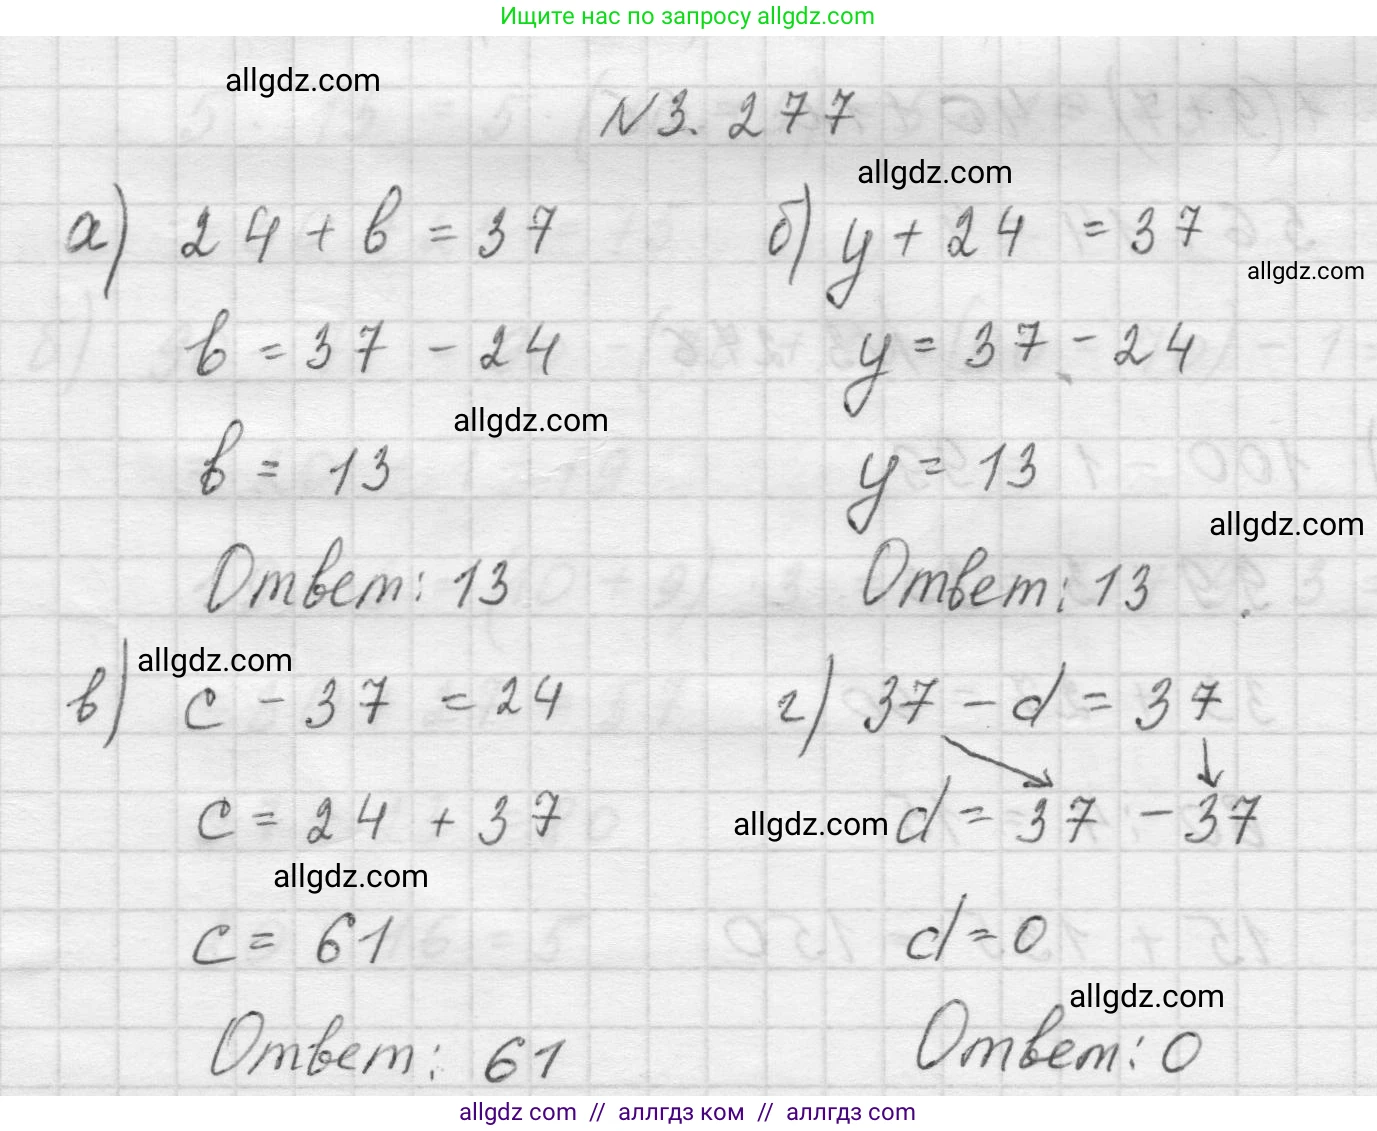 Ищите нас по запросу allgdz.com
allgdz.com
N 3. 277
allgdz.com
а) 24 + в = 37
б) y + 24 = 37
allgdz.com
в = 37 - 24
y = 37 - 24
allgdz.com
в = 13
y = 13
allgdz.com
Ответ: 13
Ответ: 13
allgdz.com
в) c - 37 = 24
г) 37 - d = 37
c = 24 + 37
allgdz.com
d = 37 - 37
allgdz.com
c = 61
d = 0
allgdz.com
Ответ: 61
Ответ: 0
allgdz com // аллгдз ком // аллгдз com